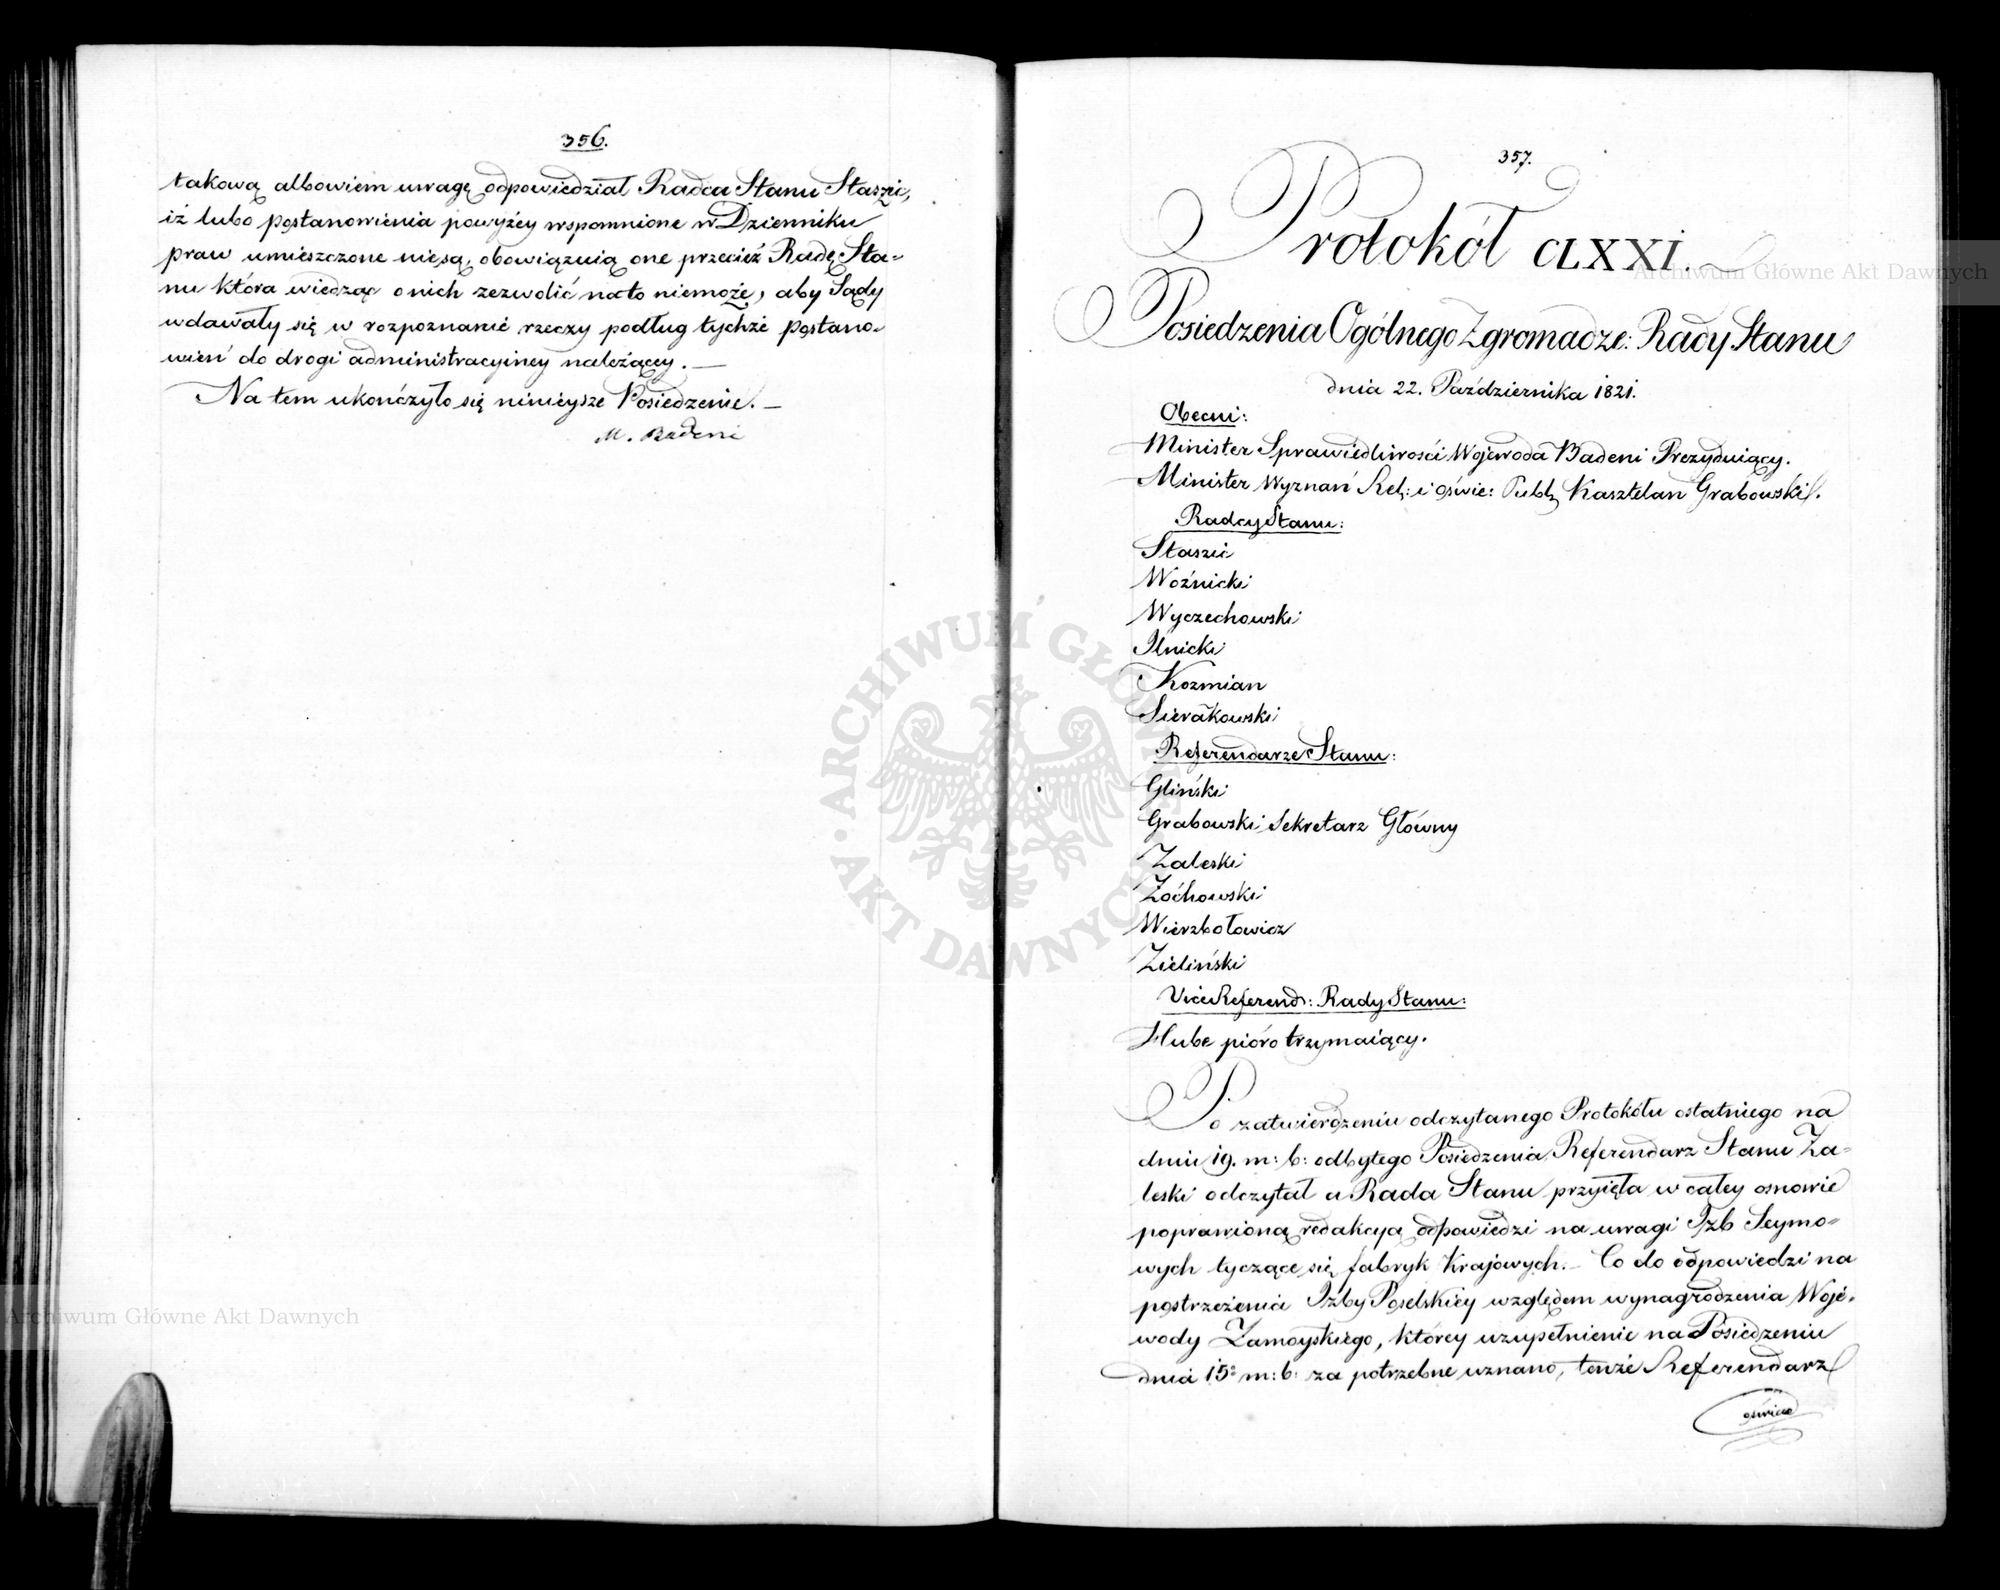 356.
takową albowiem uwagę odpowiedział Radca Stanu Staszic,
iż lubo postanowienia powyżéy wspomnione w Dzienniku
praw umieszczone nie są, obowiązuią one przecież Radę Sta-
nu która wiedząc o nich zezwolić na to niemoże, aby Sądy
wdawały się w rozpoznanie rzeczy podług tychże postano-
wień do drogi administracyiney należącéy. —
Na tem ukończyło się ninieysze Posiedzenie. —
M. Badeni
357.
Protokół CLXXI.
Posiedzenia Ogólnego Zgromadze: Rady Stanu
dnia 22. Października 1821.
Obecni:
Minister Sprawiedliwości Wojewoda Badeni Prezyduiący.
Minister Wyznań Rel: i Oświe: Publ: Kasztelan Grabowski.
Radcy Stanu:
Staszic
Woźnicki
Wyczechowski
Ilnicki
Kozmian
Sierakowski
Referendarze Stanu:
Gliński
Grabowski Sekretarz Główny
Zaleski
Żochowski
Wierzbołowicz
Zieliński
Vice Referend: Rady Stanu:
Hube pióro trzymaiący.
Po zatwierdzeniu odczytanego Protokółu ostatniego na
dniu 19. m: b: odbytego Posiedzenia, Referendarz Stanu Za-
leski odczytał a Rada Stanu przyięła w całey osnowie
poprawioną redakcyą odpowiedzi na uwagi Izb Seymo-
wych tyczące się fabryk Krajowych. — Co do odpowiedzi na
postrzeżenia Izby Poselskiéy względem wynagrodzenia Woje-
wody Zamoyskiego, którey uzupełnienie na Posiedzeniu
dnia 15. m: b: za potrzebne uznano, tenże Referendarz
oświad
Archiwum Główne Akt Dawnych
Archiwum Główne Akt Dawnych
ARCHIWUM GŁÓWNE AKT DAWNYCH